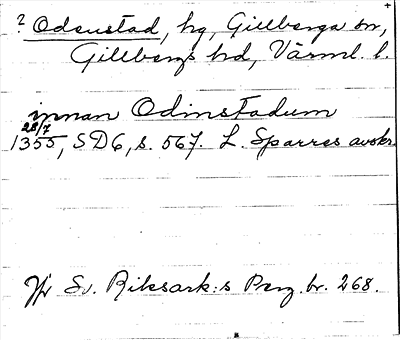 ? Odenstad, hg, Gillberga sn,
Gillbergs hd, Värml. l.
innan Odinstadum
28/7
1355, SD6, s. 567. L. Sparres avskr.
Jfr Sv. Riksark:s Perg. br. 268.